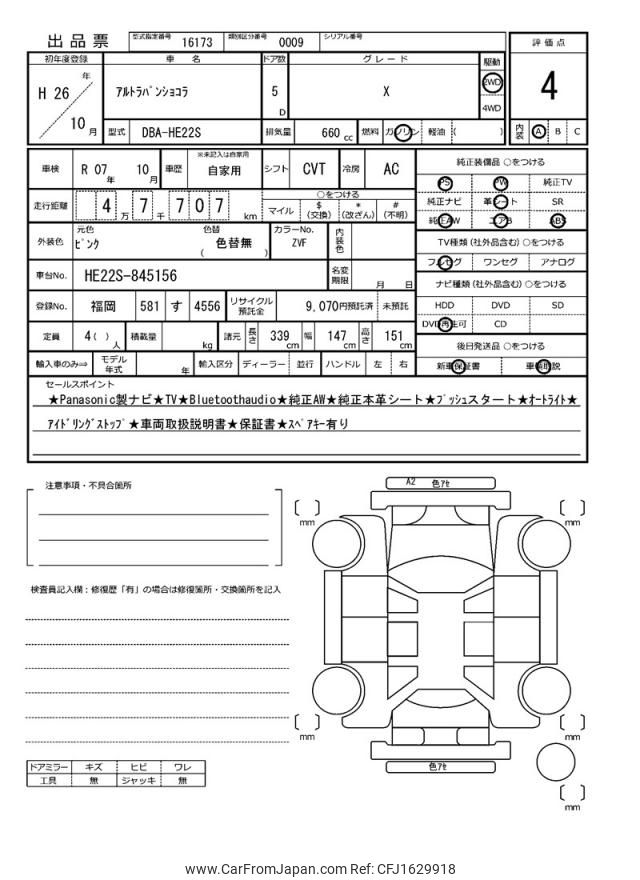 出品票 型式指定番号 16173 類別区分番号 0009 シリアル番号
評価点
初年度登録 車名 ドア数 グレード 駆動
H 26 年 10 月 ｱﾙﾄﾗﾊﾟﾝｼｮｺﾗ 5 D X 2WD 4WD
4
型式 DBA-HE22S 排気量 660 cc 燃料 ガソリン 軽油 ( )
内装 A B C
車検 R 07 年 10 月 車歴 ※未記入は自家用 自家用 シフト CVT 冷房 AC
純正装備品 ○をつける
PS PW 純正TV
純正ナビ 革シート SR
純正AW エアB ABS
走行距離 4 万 7 千 7 0 7 km
○をつける
マイル $ (交換) * (改ざん) # (不明)
外装色 元色 ﾋﾟﾝｸ 色替 ( 色替無 ) カラーNo. ZVF 内装色
TV種類 (社外品含む) ○をつける
フルセグ ワンセグ アナログ
車台No. HE22S-845156 名変期限 月 日
ナビ種類 (社外品含む) ○をつける
HDD DVD SD
DVD再生可 CD
登録No. 福岡 581 す 4556 リサイクル預託金 9,070円預託済 未預託
定員 4 ( ) 人 積載量 kg 諸元 長さ 339 cm 幅 147 cm 高さ 151 cm
後日発送品 ○をつける
新車保証書 車輌取説
輸入車のみ⇒ モデル年式 年 輸入区分 ディーラー 並行 ハンドル 左 右
セールスポイント
★Panasonic製ナビ★TV★Bluetoothaudio★純正AW★純正本革シート★ﾌﾟｯｼｭスタート★ｵｰﾄﾗｲﾄ★
ｱｲﾄﾞﾘﾝｸﾞｽﾄｯﾌﾟ★車両取扱説明書★保証書★ｽﾍﾟｱｷｰ有り
注意事項・不具合箇所
A2 色ｱｾ
mm
mm
検査員記入欄：修復歴「有」の場合は修復箇所・交換箇所を記入
mm
mm
色ｱｾ
ドアミラー キズ ヒビ ワレ
工具 無 ジャッキ 無
mm
www.CarFromJapan.com Ref: CFJ1629918